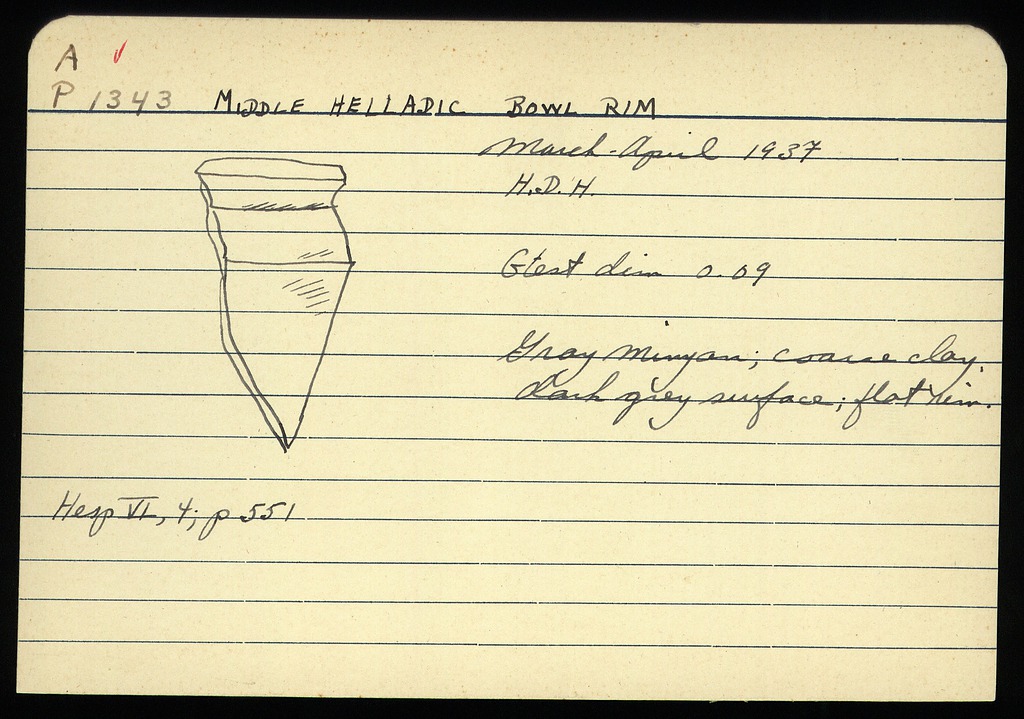 A
P 1343 MIDDLE HELLADIC BOWL RIM
March-April 1937
H.D.H.
Gtest dim 0.09
Gray Minyan; coarse clay,
dark grey surface; flat rim.
Hesp VI, 4; p 551